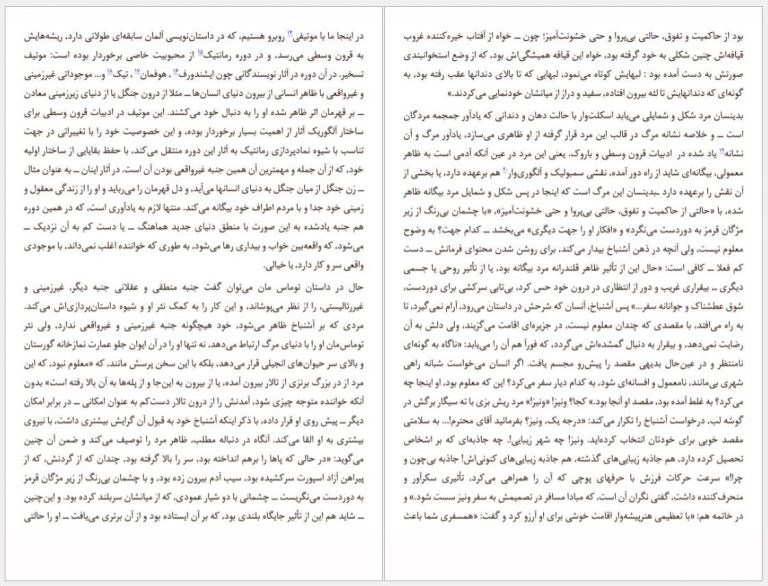 در اینجا ما با موتیفی۱۴ روبرو هستیم، که در داستان‌نویسی آلمان سابقه‌ای طولانی دارد، ریشه‌هایش
به قرون وسطی می‌رسد، و در دوره رمانتیک۱۵ از محبوبیت خاصی برخوردار بوده است: موتیف
تسخیر. در آن دوره در آثار نویسندگانی چون ایشندورف۱۶، هوفمان۱۷، تیک۱۸ و... موجوداتی غیرزمینی
و غیرواقعی با ظاهر انسانی از بیرون دنیای انسان‌ها ــ مثلا از درون جنگل یا از دنیای زیرزمینی معادن
ــ بر قهرمان اثر ظاهر شده او را به دنبال خود می‌کشند. این موتیف در ادبیات قرون وسطی برای
ساختار آلگوریک آثار از اهمیت بسیار برخوردار بوده، و این خصوصیت خود را با تغییراتی در جهت
تناسب با شیوه نمادپردازی رمانتیک به آثار این دوره منتقل می‌کند، با حفظ بقایایی از ساختار اولیه
خود، که از آن جمله و مهمترین آن همین جنبه غیرواقعی بودن آن است. در آثار اینان ــ به عنوان مثال
ــ زن جنگل از میان جنگل به دنیای انسانها می‌آید، و دل قهرمان را می‌رباید و او را از زندگی معقول و
زمینی خود جدا و با مردم اطراف خود بیگانه می‌کند. منتها لازم به یادآوری است، که در همین دوره
هم جنبه یادشده به این صورت با منطق دنیای جدید هماهنگ ــ یا دست کم به آن نزدیک ــ
می‌شود، که واقعه‌بین خواب و بیداری رها می‌شود، به طوری که خواننده اغلب نمی‌داند، با موجودی
واقعی سر و کار دارد، یا خیالی.
حال در داستان توماس مان می‌توان گفت جنبه منطقی و عقلانی جنبه دیگر، غیرزمینی و
غیررئالیستی، را از نظر می‌پوشاند، و این کار را به کمک نثر او و شیوه داستان‌پردازی‌اش می‌کند.
مردی که بر آشنباخ ظاهر می‌شود، خود هیچگونه جنبه غیرزمینی و غیرواقعی ندارد، ولی نثر
توماس‌مان او را با دنیای مرگ ارتباط می‌دهد، نه تنها او را در آن ایوان جلو عمارت نمازخانه گورستان
و بالای سر حیوان‌های انجیلی قرار می‌دهد، بلکه با این سخن پرسش مانند، که «معلوم نبود، که این
مرد از در بزرگ برنزی از تالار بیرون آمده، یا از بیرون به این‌جا و از پله‌ها به آن بالا رفته است» بدون
آنکه خواننده متوجه چیزی شود، آمدنش را از درون تالار دست‌کم به عنوان امکانی ــ در برابر امکان
دیگر ــ پیش روی او قرار داده، با ذکر اینکه آشنباخ خود به قبول آن گرایش بیشتری داشت، با نیروی
بیشتری به او القا می‌کند. آنگاه در دنباله مطلب، ظاهر مرد را توصیف می‌کند و ضمن آن چنین
می‌گوید: «در حالی که پاها را برهم انداخته بود، سر را بالا گرفته بود، چندان که از گردنش، که از
پیراهن آزاد اسپورت سرکشیده بود، سیب آدم بیرون زده بود، و با چشمان بی‌رنگ از زیر مژگان قرمز
به دوردست می‌نگریست ــ چشمانی با دو شیار عمودی، که از میانشان سربلند کرده بود. و این‌چنین
ــ شاید هم این از تأثیر جایگاه بلندی بود، که بر آن ایستاده بود و از آن برتری می‌یافت ــ او را حالتی
بود از حاکمیت و تفوق، حالتی بی‌پروا و حتی خشونت‌آمیز؛ چون ــ خواه از آفتاب خیره‌کننده غروب
قیافه‌اش چنین شکلی به خود گرفته بود، خواه این قیافه همیشگی‌اش بود، که از وضع استخوانبندی
صورتش به دست آمده بود : لبهایش کوتاه می‌نمود، لبهایی که تا بالای دندانها عقب رفته بود، به
گونه‌ای که دندانهایش تا لثه بیرون افتاده، سفید و دراز از میانشان خودنمایی می‌کردند.»
بدینسان مرد شکل و شمایلی می‌یابد اسکلت‌وار با حالت دهان و دندانی که یادآور جمجمه مردگان
است ــ و خلاصه نشانه مرگ در قالب این مرد قرار گرفته از او ظاهری می‌سازد، یادآور مرگ و آن
نشانه۱۹ یاد شده در ادبیات قرون وسطی و باروک. یعنی این مرد در عین آنکه آدمی است به ظاهر
معمولی، بیگانه‌ای شاید از راه دور آمده، نقشی سمبولیک و آلگوری‌وار۲۰ هم برعهده دارد، یا بخشی از
آن نقش را برعهده دارد ــبدینسان این مرگ است که اینجا در پس شکل و شمایل مرد بیگانه ظاهر
شده، با «حالتی از حاکمیت و تفوق، حالتی بی‌پروا و حتی خشونت‌آمیز»، «با چشمان بی‌رنگ از زیر
مژگان قرمز به دوردست می‌نگرد» و «افکار او را جهت دیگری» می‌بخشد ــ کدام جهت؟ به وضوح
معلوم نیست، ولی آنچه در ذهن آشنباخ بیدار می‌کند، برای روشن شدن محتوای فرمانش ــ دست
کم فعلا ــ کافی است: «حال این از تأثیر ظاهر قلندرانه مرد بیگانه بود، یا از تأثیر روحی یا جسمی
دیگری ــ بیقراری غریب و دور از انتظاری در درون خود حس کرد، بی‌تابی سرکشی برای دوردست،
شوق عطشناک و جوانانه سفر...» پس آشنباخ، آنسان که شرحش در داستان می‌رود، آرام نمی‌گیرد، تا
به راه می‌افتد، با مقصدی که چندان معلوم نیست، در جزیره‌ای اقامت می‌گزیند، ولی دلش به آن
رضایت نمی‌دهد، و بیقرار به دنبال گمشده‌اش می‌گردد، که فوراً هم آن را می‌یابد: «ناگاه به گونه‌ای
نامنتظر و در عین‌حال بدیهی مقصد را پیش‌رو مجسم یافت. اگر انسان می‌خواست شبانه راهی
شهری بی‌مانند، نامعمول و افسانه‌ای شود، به کدام دیار سفر می‌کرد؟ این که معلوم بود، او اینجا چه
می‌کرد؟ به غلط آمده بود، مقصد او آنجا بود.» کجا؟ ونیز! «ونیز!» مرد ریش بزی با ته سیگار برگش در
گوشه لب، درخواست آشنباخ را تکرار می‌کند: «درجه یک، ونیز؟ بفرمائید آقای محترم!... به سلامتی
مقصد خوبی برای خودتان انتخاب کرده‌اید. ونیز! چه شهر زیبایی!. چه جاذبه‌ای که بر اشخاص
تحصیل کرده دارد، هم جاذبه زیبایی‌های گذشته، هم جاذبه زیبایی‌های کنونی‌اش! جاذبه بی‌چون و
چرا!» سرعت حرکات فرزش با حرفهای پوچی که آن را همراهی می‌کرد، تأثیری سکرآور و
منحرف‌کننده داشت، گفتی نگران آن است، که مبادا مسافر در تصمیمش به سفر ونیز سست شود.» و
در خاتمه هم: «با تعظیمی هنرپیشه‌وار اقامت خوشی برای او آرزو کرد و گفت: «همسفری شما باعث